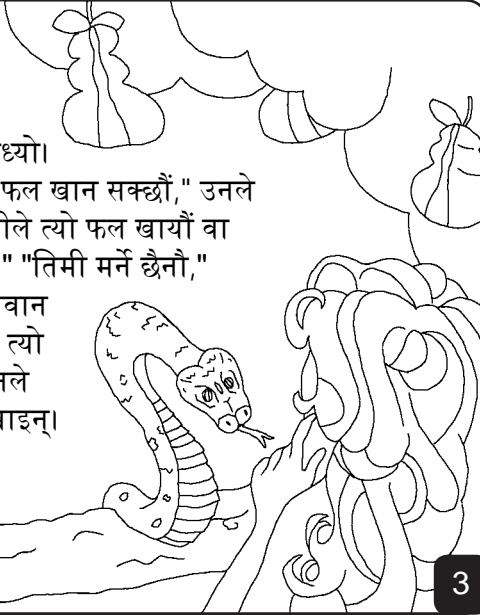 ध्यो।
फल खान सक्छौं," उनले
ीले त्यो फल खायौं वा
" "तिमी मर्ने छैनौ,"
वान
त्यो
ले
ाइन्।
3